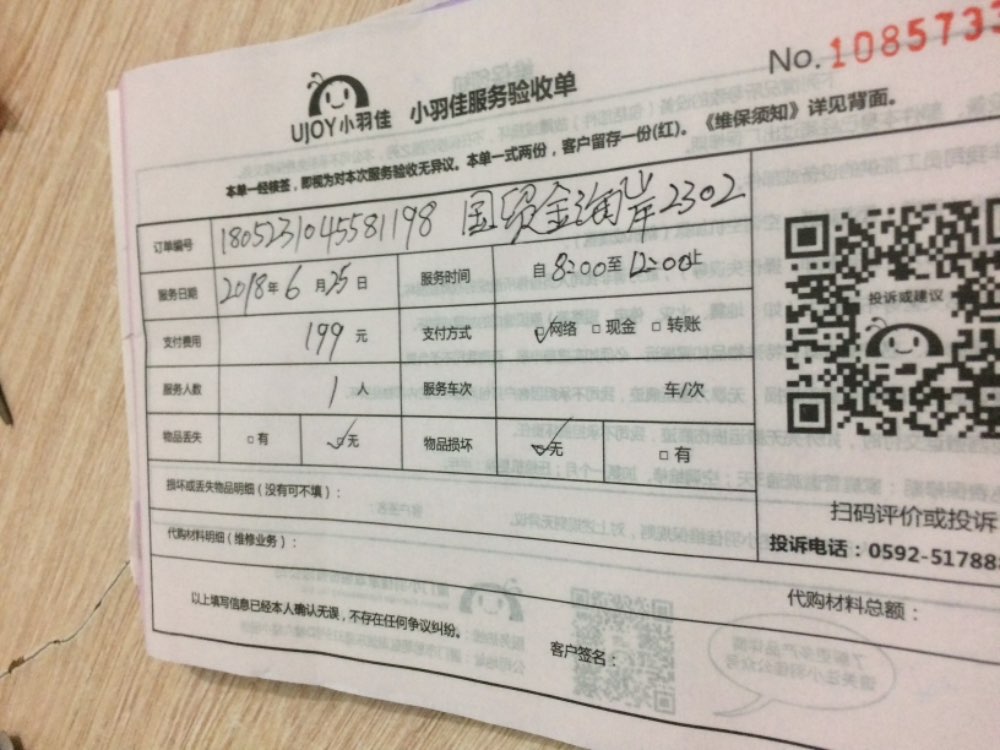 No.1085733
UJOY小羽佳 小羽佳服务验收单
本单一经核签，即视为对本次服务验收无异议。本单一式两份，客户留存一份(红)。《维保须知》详见背面。
订单编号 1805231045581198 国贸金海岸2302
服务日期 2018年6月25日 服务时间 自8:00至12:00止
支付费用 199元 支付方式 ☑网络 □现金 □转账
服务人数 1人 服务车次 车/次
物品丢失 □有 ☑无 物品损坏 ☑无 □有
损坏或丢失物品明细（没有可不填）：
代购材料明细（维修业务）：
以上填写信息已经本人确认无误，不存在任何争议纠纷。
客户签名：
投诉或建议
扫码评价或投诉
投诉电话：0592-51788
代购材料总额：